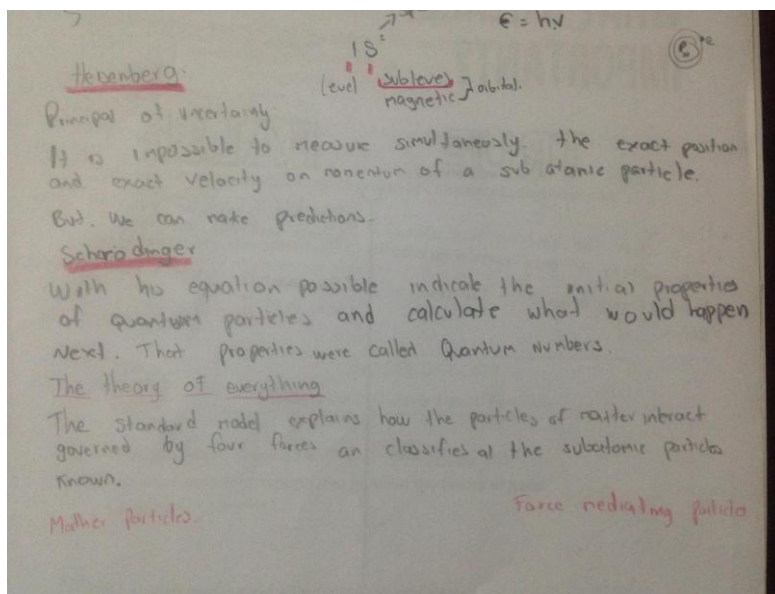 E = hν
1S²
Hevenberg.
level sublevel magnetic } orbital.
Principal of uncertainty
It is impossible to measure simultaneously. the exact position
and exact velocity on nonentum of a sub atamic particle.
But. We can nake predictions.
Scharodinger
With his equation possible indicate the initial properties
of Quantum particles and calculate what would happen
Next. That properties were called Quantum Numbers.
The theory of everything
The standard nodel explains how the particles of matter interact
governed by four forces an classifies al the subatomic particles
Known.
Mather Particles.
Force nediating particle